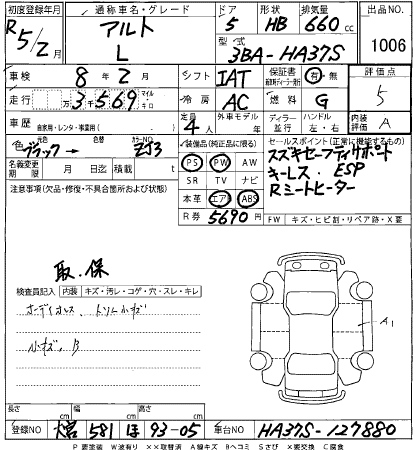 初度登録年月 通称車名・グレード ドア 形状 排気量 出品NO.
R5/2月 アルト L 5 HB 660cc 1006
型式 3BA-HA37S
車検 8年2月 シフト IAT 保証書 有・無 評価点 5
走行 3千569 マイル・キロ 冷房 AC 燃料 G 内装評価 A
車歴 自家用・レンタ・事業用( ) 定員 4人 外車モデル 年 ディーラー・並行 ハンドル 左・右
色 ブラック→ カラーNO. ZJ3 装備品(純正品に限る) セールスポイント(正常に機能するもの)
名義変更期限 月 日迄 積載 t PS PW AW スズキセーフティサポート
注意事項(欠品・修復・不具合箇所および状態) SR TV ナビ キーレス.ESP
本革 エア ABS Rシートヒーター
R券 5690円 FW キズ・ヒビ割・リペア跡・X要
取.保
検査員記入 内装 キズ・汚レ・コゲ・穴・スレ・キレ
オーディオレス. トリム小キズ
小キズ.B
A1
長さ cm 幅 cm 高さ cm
登録NO 大宮 581 ほ 93-05 車台NO HA37S-127880
P要塗装 W波有り ××取替済 A線キズ Bヘコミ Sさび ×要交換 C腐食